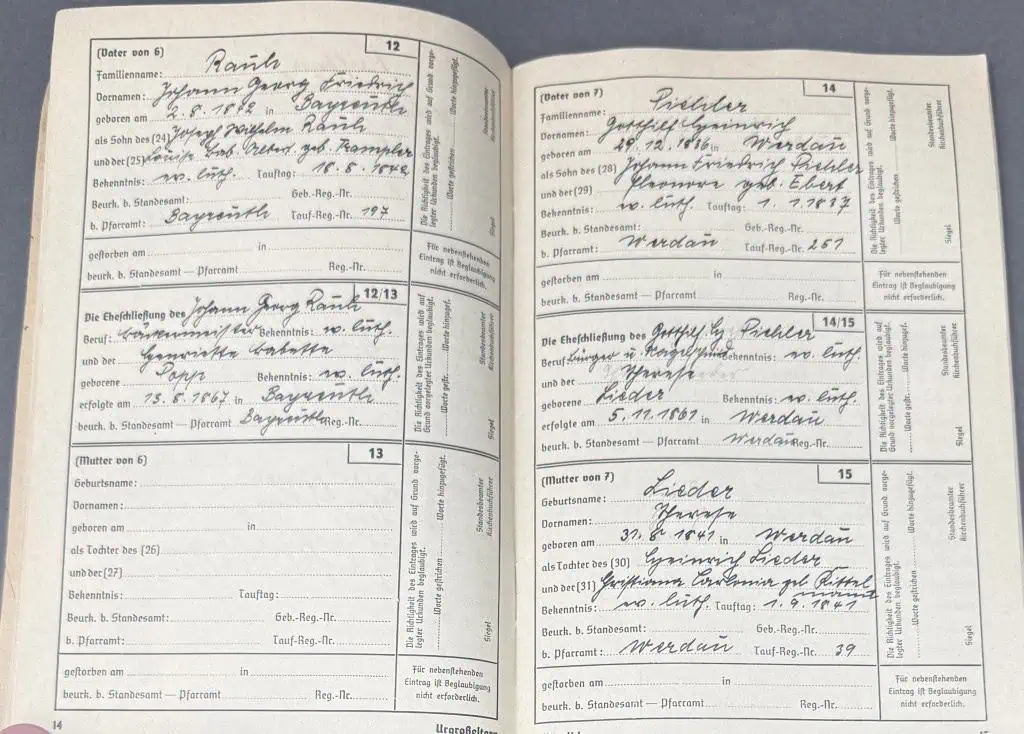 (Vater von 6) 12
Familienname: Rauh
Vornamen: Johann Georg Friedrich
geboren am 2. 8. 1842 in Bayreuth
als Sohn des (24) Joseph Wilhelm Rauh
und der (25) Louise Bab. Albert. geb. Krampler
Bekenntnis: ev. luth. Tauftag: 18. 8. 1842
Beurk. b. Standesamt: Geb.-Reg.-Nr.
b. Pfarramt: Bayreuth Tauf-Reg.-Nr. 197
gestorben am in
beurk. b. Standesamt — Pfarramt Reg.-Nr.
Die Richtigkeit des Eintrages wird auf Grund vorge-
legter Urkunden beglaubigt.
Worte gestrichen Worte hinzugefügt.
Siegel Standesbeamter
Kirchenbuchführer
Für nebenstehenden
Eintrag ist Beglaubigung
nicht erforderlich.
12/13
Die Eheschließung des Johann Georg Rauh
Beruf: Bäckermeister Bekenntnis: ev. luth.
und der Henriette Babette
geborene Popp Bekenntnis: ev. luth.
erfolgte am 13. 8. 1867 in Bayreuth
beurk. b. Standesamt — Pfarramt Bayreuth Reg.-Nr.
Die Richtigkeit des Eintrages wird auf
Grund vorgelegter Urkunden beglaubigt.
Worte gestr. Worte hinzugef.
Siegel Standesbeamter
Kirchenbuchführer
(Mutter von 6) 13
Geburtsname:
Vornamen:
geboren am in
als Tochter des (26)
und der (27)
Bekenntnis: Tauftag:
Beurk. b. Standesamt: Geb.-Reg.-Nr.
b. Pfarramt: Tauf-Reg.-Nr.
gestorben am in
beurk. b. Standesamt — Pfarramt Reg.-Nr.
Die Richtigkeit des Eintrages wird auf Grund vorge-
legter Urkunden beglaubigt.
Worte gestrichen Worte hinzugefügt.
Siegel Standesbeamter
Kirchenbuchführer
Für nebenstehenden
Eintrag ist Beglaubigung
nicht erforderlich.
14 Urgroßeltern
(Vater von 7) 14
Familienname: Piehler
Vornamen: Gotthilf Heinrich
geboren am 29. 12. 1836 in Werdau
als Sohn des (28) Johann Friedrich Piehler
und der (29) Eleonore geb. Ebert
Bekenntnis: ev. luth. Tauftag: 1. 1. 1837
Beurk. b. Standesamt: Geb.-Reg.-Nr.
b. Pfarramt: Werdau Tauf-Reg.-Nr. 251
gestorben am in
beurk. b. Standesamt — Pfarramt Reg.-Nr.
Die Richtigkeit des Eintrages wird auf Grund vorge-
legter Urkunden beglaubigt.
Worte gestrichen Worte hinzugefügt.
Siegel Standesbeamter
Kirchenbuchführer
Für nebenstehenden
Eintrag ist Beglaubigung
nicht erforderlich.
14/15
Die Eheschließung des Gotthilf Hch Piehler
Beruf: Bürger u. Bekenntnis: ev. luth.
und der Therese
geborene Lieder Bekenntnis: ev. luth.
erfolgte am 5. 11. 1861 in Werdau
beurk. b. Standesamt — Pfarramt Werdau Reg.-Nr.
Die Richtigkeit des Eintrages wird auf
Grund vorgelegter Urkunden beglaubigt.
Worte gestr. Worte hinzugef.
Siegel Standesbeamter
Kirchenbuchführer
(Mutter von 7) 15
Geburtsname: Lieder
Vornamen: Therese
geboren am 31. 8. 1841 in Werdau
als Tochter des (30) Heinrich Lieder
und der (31) Christiana geb. Kittel
mann
Bekenntnis: ev. luth. Tauftag: 1. 9. 1841
Beurk. b. Standesamt: Geb.-Reg.-Nr.
b. Pfarramt: Werdau Tauf-Reg.-Nr. 39
gestorben am in
beurk. b. Standesamt — Pfarramt Reg.-Nr.
Die Richtigkeit des Eintrages wird auf Grund vorge-
legter Urkunden beglaubigt.
Worte gestrichen Worte hinzugefügt.
Siegel Standesbeamter
Kirchenbuchführer
Für nebenstehenden
Eintrag ist Beglaubigung
nicht erforderlich.